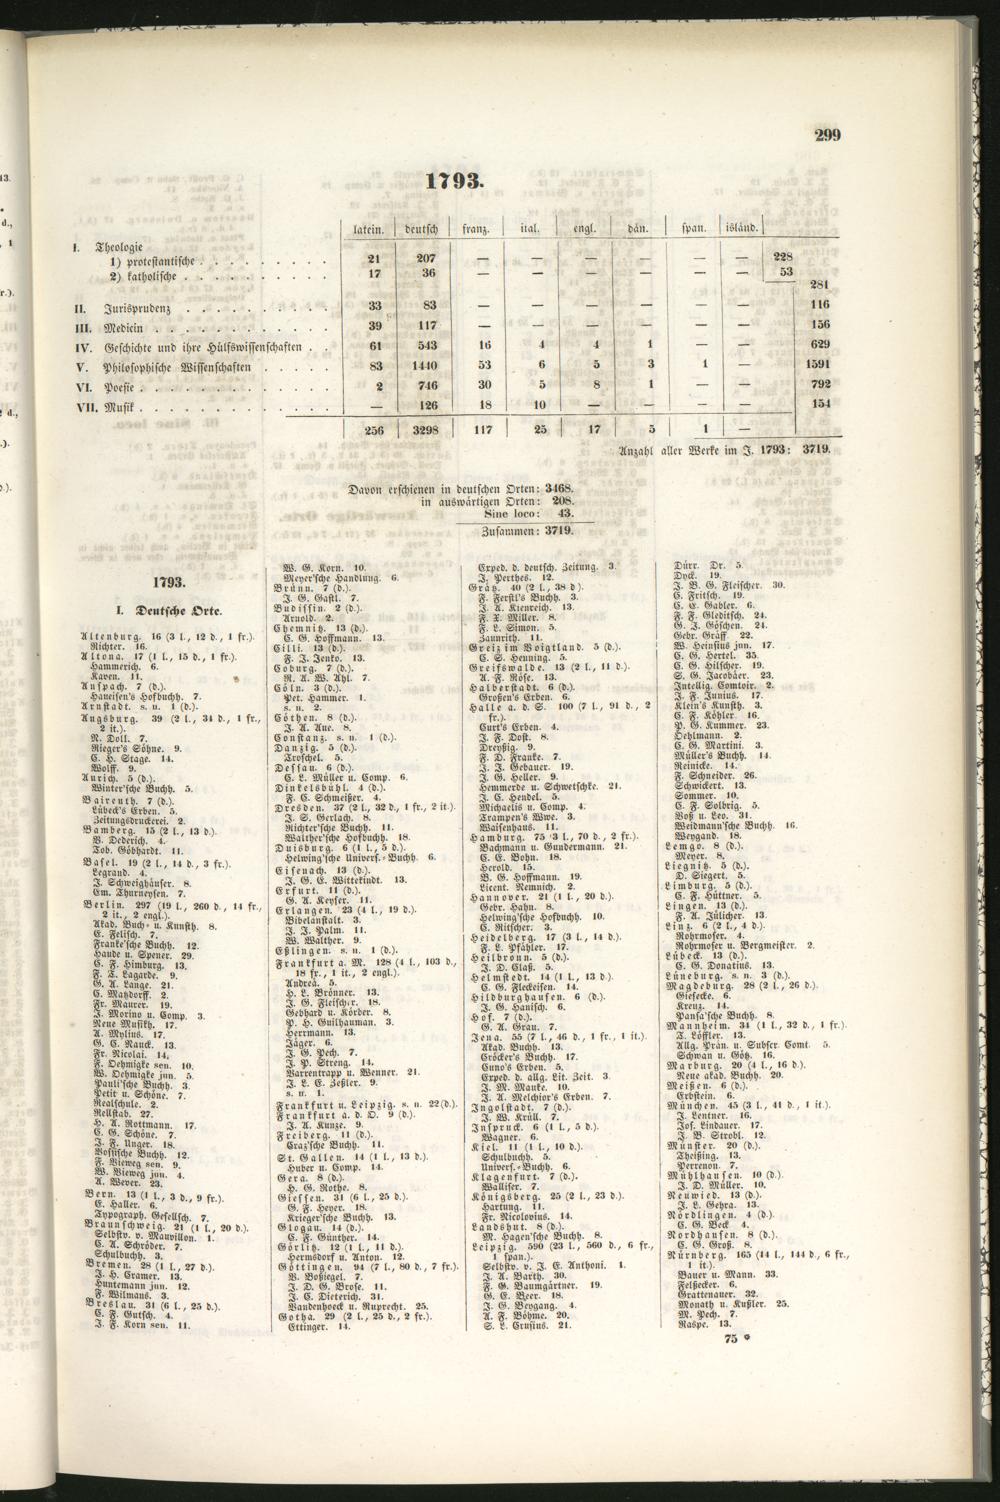 299
1793.
latein. deutsch franz. ital. engl. dän. span. isländ.
I. Theologie
1) protestantische 21 207 — — — — — — 228
2) katholische 17 36 — — — — — — 53
281
II. Jurisprudenz 33 83 — — — — — — 116
III. Medicin 39 117 — — — — — — 156
IV. Geschichte und ihre Hülfswissenschaften 61 543 16 4 4 1 — — 629
V. Philosophische Wissenschaften 83 1440 53 6 5 3 1 — 1591
VI. Poesie 2 746 30 5 8 1 — — 792
VII. Musik — 126 18 10 — — — — 154
256 3298 117 25 17 5 1 —
Anzahl aller Werke im J. 1793: 3719.
Davon erschienen in deutschen Orten: 3468.
in auswärtigen Orten: 208.
Sine loco: 43.
Zusammen: 3719.
1793.
I. Deutsche Orte.
Altenburg. 16 (3 l., 12 d., 1 fr.).
Richter. 16.
Altona. 17 (1 l., 15 d., 1 fr.).
Hammerich. 6.
Kaven. 11.
Anspach. 7 (d.).
Haueisen's Hofbuchh. 7.
Arnstadt. s. n. 1 (d.).
Augsburg. 39 (2 l., 34 d., 1 fr.,
2 it.).
N. Doll. 7.
Rieger's Söhne. 9.
C. H. Stage. 14.
Wolff. 9.
Aurich. 5 (d.).
Winter'sche Buchh. 5.
Baireuth. 7 (d.).
Lübeck's Erben. 5.
Zeitungsdruckerei. 2.
Bamberg. 15 (2 l., 13 d.).
V. Dederich. 4.
Tob. Göbhardt. 11.
Basel. 19 (2 l., 14 d., 3 fr.).
Legrand. 4.
J. Schweighäuser. 8.
Em. Thurneysen. 7.
Berlin. 297 (19 l., 260 d., 14 fr.,
2 it., 2 engl.).
Akad. Buch- u. Kunsth. 8.
E. Felisch. 7.
Franke'sche Buchh. 12.
Haude u. Spener. 29.
C. F. Himburg. 13.
F. T. Lagarde. 9.
G. A. Lange. 21.
C. Matzdorff. 2.
Fr. Maurer. 19.
J. Morino u. Comp. 3.
Neue Musikh. 17.
A. Mylius. 17.
G. C. Nauck. 13.
Fr. Nicolai. 14.
F. Oehmigke sen. 10.
W. Oehmigke jun. 5.
Pauli'sche Buchh. 3.
Petit u. Schöne. 7.
Realschule. 2.
Rellstab. 27.
H. A. Rottmann. 17.
C. G. Schöne. 7.
J. F. Unger. 18.
Vossische Buchh. 12.
F. Vieweg sen. 9.
W. Vieweg jun. 4.
A. Wever. 23.
Bern. 13 (1 l., 3 d., 9 fr.).
E. Haller. 6.
Typograph. Gesellsch. 7.
Braunschweig. 21 (1 l., 20 d.).
Selbstv. v. Mauvillon. 1.
C. A. Schröder. 7.
Schulbuchh. 3.
Bremen. 28 (1 l., 27 d.).
J. H. Cramer. 13.
Huntemann jun. 12.
F. Wilmans. 3.
Breslau. 31 (6 l., 25 d.).
C. F. Gutsch. 4.
J. F. Korn sen. 11.
W. G. Korn. 10.
Meyer'sche Handlung. 6.
Brünn. 7 (d.).
J. G. Gastl. 7.
Budissin. 2 (d.).
Arnold. 2.
Chemnitz. 13 (d.).
C. G. Hoffmann. 13.
Cilli. 13 (d.).
F. J. Jenko. 13.
Coburg. 7 (d.).
R. A. W. Ahl. 7.
Cöln. 3 (d.).
Pet. Hammer. 1.
s. n. 2.
Cöthen. 8 (d.).
J. A. Aue. 8.
Constanz. s. n. 1 (d.).
Danzig. 5 (d.).
Troschel. 5.
Dessau. 6 (d.).
C. L. Müller u. Comp. 6.
Dinkelsbühl. 4 (d.).
F. C. Schmeißer. 4.
Dresden. 37 (2 l., 32 d., 1 fr., 2 it.).
J. S. Gerlach. 8.
Richter'sche Buchh. 11.
Walther'sche Hofbuchh. 18.
Duisburg. 6 (1 l., 5 d.).
Helwing'sche Univers.-Buchh. 6.
Eisenach. 13 (d.).
J. G. E. Wittekindt. 13.
Erfurt. 11 (d.).
G. A. Keyser. 11.
Erlangen. 23 (4 l., 19 d.).
Bibelanstalt. 3.
J. J. Palm. 11.
W. Walther. 9.
Eßlingen. s. n. 1 (d.).
Frankfurt a. M. 128 (4 l., 103 d.,
18 fr., 1 it., 2 engl.).
Andreä. 5.
H. L. Brönner. 13.
J. G. Fleischer. 18.
Gebhard u. Körber. 8.
P. H. Guilhauman. 3.
Herrmann. 13.
Jäger. 6.
J. G. Pech. 7.
J. P. Streng. 14.
Varrentrapp u. Wenner. 21.
J. L. E. Zeßler. 9.
s. n. 1.
Frankfurt u. Leipzig. s. n. 22 (d.).
Frankfurt a. d. O. 9 (d.).
J. A. Kunze. 9.
Freiberg. 11 (d.).
Craz'sche Buchh. 11.
St. Gallen. 14 (1 l., 13 d.).
Huber u. Comp. 14.
Gera. 8 (d.).
H. G. Rothe. 8.
Giessen. 31 (6 l., 25 d.).
G. F. Heyer. 18.
Krieger'sche Buchh. 13.
Glogau. 14 (d.).
C. F. Günther. 14.
Görlitz. 12 (1 l., 11 d.).
Hermsdorf u. Anton. 12.
Göttingen. 94 (7 l., 80 d., 7 fr.).
V. Boßiegel. 7.
J. D. G. Brose. 11.
J. C. Dieterich. 31.
Vandenhoeck u. Ruprecht. 25.
Gotha. 29 (2 l., 25 d., 2 fr.).
Ettinger. 14.
Exped. d. deutsch. Zeitung. 3.
J. Perthes. 12.
Grätz. 40 (2 l., 38 d.).
F. Ferstl's Buchh. 3.
J. A. Kienreich. 13.
F. X. Miller. 8.
F. L. Simon. 5.
Zaunrith. 11.
Greiz im Voigtland. 5 (d.).
C. S. Henning. 5.
Greifswalde. 13 (2 l., 11 d.).
A. F. Röse. 13.
Halberstadt. 6 (d.).
Großen's Erben. 6.
Halle a. d. S. 100 (7 l., 91 d., 2
fr.).
Curt's Erben. 4.
J. F. Dost. 8.
Dreyßig. 9.
F. D. Franke. 7.
J. J. Gebauer. 19.
J. G. Heller. 9.
Hemmerde u. Schwetschke. 21.
J. C. Hendel. 5.
Michaelis u. Comp. 4.
Trampen's Wwe. 3.
Waisenhaus. 11.
Hamburg. 75 3 l., 70 d., 2 fr.).
Bachmann u. Gundermann. 21.
C. E. Bohn. 18.
Herold. 15.
B. G. Hoffmann. 19.
Licent. Nemnich. 2.
Hannover. 21 (1 l., 20 d.).
Gebr. Hahn. 8.
Helwing'sche Hofbuchh. 10.
C. Ritscher. 3.
Heidelberg. 17 (3 l., 14 d.).
F. L. Pfähler. 17.
Heilbronn. 5 (d.).
J. D. Claß. 5.
Helmstedt. 14 (1 l., 13 d.).
C. G. Fleckeisen. 14.
Hildburghausen. 6 (d.).
J. G. Hanisch. 6.
Hof. 7 (d.).
G. A. Grau. 7.
Jena. 55 (7 l., 46 d., 1 fr., 1 it.).
Akad. Buchh. 13.
Cröcker's Buchh. 17.
Cuno's Erben. 5.
Exped. d. allg. Lit. Zeit. 3.
J. M. Mauke. 10.
J. A. Melchior's Erben. 7.
Ingolstadt. 7 (d.).
J. W. Krüll. 7.
Inspruck. 6 (1 l., 5 d.).
Wagner. 6.
Kiel. 11 (1 l., 10 d.).
Schulbuchh. 5.
Univers.-Buchh. 6.
Klagenfurt. 7 (d.).
Walliser. 7.
Königsberg. 25 (2 l., 23 d.).
Hartung. 11.
Fr. Nicolovius. 14.
Landshut. 8 (d.).
M. Hagen'sche Buchh. 8.
Leipzig. 590 (23 l., 560 d., 6 fr.,
1 span.).
Selbstv. v. J. E. Anthoni. 1.
J. A. Barth. 30.
F. G. Baumgärtner. 19.
G. E. Beer. 18.
J. G. Beygang. 4.
A. F. Böhme. 20.
S. L. Crusius. 21.
Dürr. Dr. 5.
Dyck. 19.
J. B. G. Fleischer. 30.
C. Fritsch. 19.
C. E. Gabler. 6.
F. F. Gleditsch. 24.
G. J. Göschen. 24.
Gebr. Gräff. 22.
W. Heinsius jun. 17.
C. G. Hertel. 35.
C. G. Hilscher. 19.
S. G. Jacobäer. 23.
Intellig. Comtoir. 2.
J. F. Junius. 17.
Klein's Kunsth. 3.
C. F. Köhler. 16.
P. G. Kummer. 23.
Oehlmann. 2.
C. G. Martini. 3.
Müller's Buchh. 14.
Reinicke. 14.
F. Schneider. 26.
Schwickert. 13.
Sommer. 10.
C. F. Solbrig. 5.
Voß u. Leo. 31.
Weidmann'sche Buchh. 16.
Weygand. 18.
Lemgo. 8 (d.).
Meyer. 8.
Liegnitz. 5 (d.).
D. Siegert. 5.
Limburg. 5 (d.).
C. F. Hüttner. 5.
Lingen. 13 (d.).
F. A. Jülicher. 13.
Linz. 6 (2 l., 4 d.).
Rohrmoser. 4.
Rohrmoser u. Bergmeister. 2.
Lübeck. 13 (d.).
C. G. Donatius. 13.
Lüneburg. s. n. 3 (d.).
Magdeburg. 28 (2 l., 26 d.).
Giesecke. 6.
Kreuz. 14.
Pansa'sche Buchh. 8.
Mannheim. 34 (1 l., 32 d., 1 fr.).
T. Löffler. 13.
Allg. Prän. u. Subscr. Comt. 5.
Schwan u. Götz. 16.
Marburg. 20 (4 l., 16 d.).
Neue akad. Buchh. 20.
Meißen. 6 (d.).
Erbstein. 6.
München. 45 (3 l., 41 d., 1 it.).
J. Lentner. 16.
Jos. Lindauer. 17.
J. B. Strobl. 12.
Münster. 20 (d.).
Theißing. 13.
Perrenon. 7.
Mühlhausen. 10 (d.).
J. D. Müller. 10.
Neuwied. 13 (d.).
J. L. Gehra. 13.
Nördlingen. 4 (d.).
C. G. Beck. 4.
Nordhausen. 8 (d.).
C. G. Groß. 8.
Nürnberg. 165 (14 l., 144 d., 6 fr.,
1 it.).
Bauer u. Mann. 33.
Felßecker. 6.
Grattenauer. 32.
Monath u. Kußler. 25.
M. Pech. 7.
Raspe. 13.
75 *